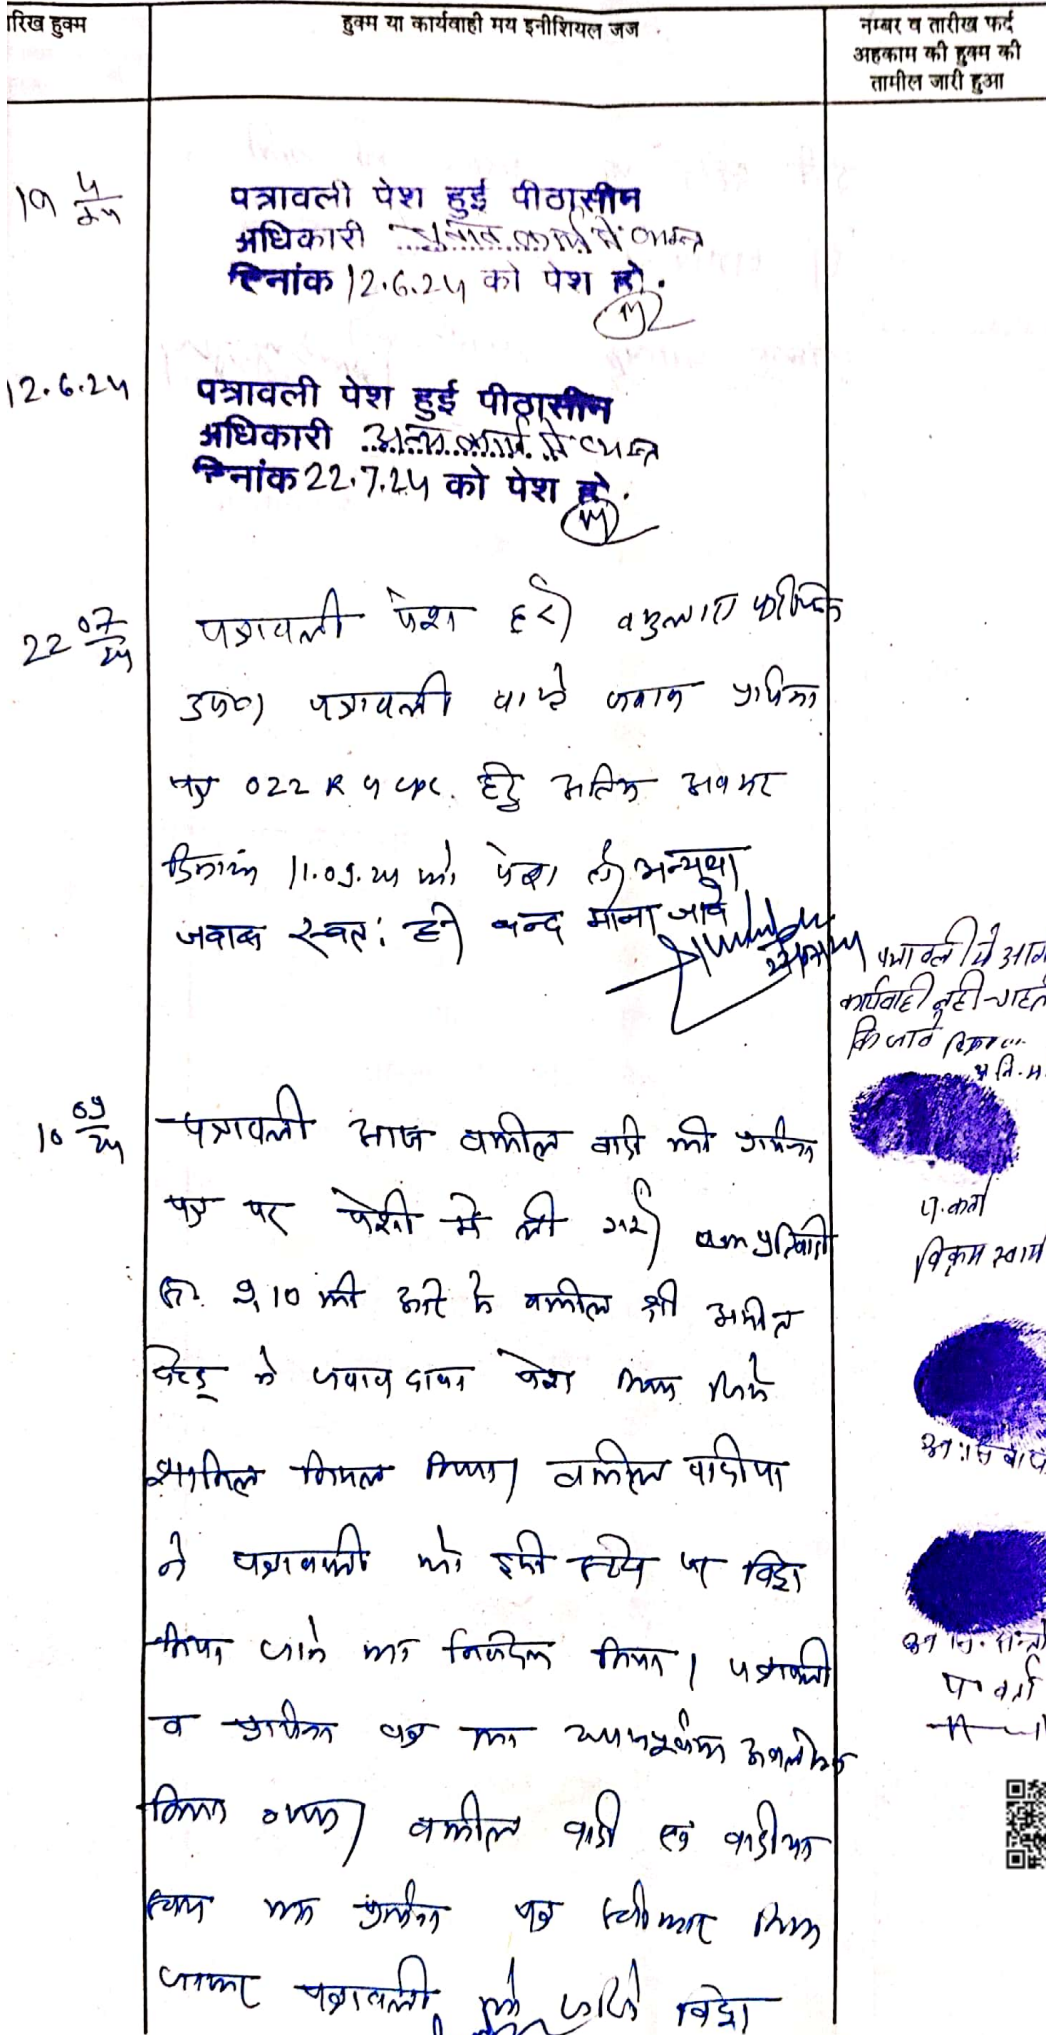 रिख हुक्म
हुक्म या कार्यवाही मय इनीशियल जज
नम्बर व तारीख फर्द
अहकाम की हुक्म की
तामील जारी हुआ
19 4/24
पत्रावली पेश हुई पीठासीन
अधिकारी चुनाव कार्य में व्यस्त
दिनांक 12.6.24 को पेश हो.
12.6.24
पत्रावली पेश हुई पीठासीन
अधिकारी अन्य कार्य में व्यस्त
दिनांक 22.7.24 को पेश हो.
22 07/24
पत्रावली पेश हुई
उप0। पत्रावली वास्ते जवाब प्रार्थना
पत्र 022 R 4 CPC. हेतु अंतिम अवसर
दिनांक 11.09.24 को पेश हो अन्यथा
जवाब स्वतः ही बन्द माना जावे
पत्रावली में आगे
कार्यवाही नहीं चाहते
10 09/24
पत्रावली आज वकील वादी की प्रार्थना
पत्र पर पेशी में ली गई। प्रतिवादी
सं. 9, 10 की ओर से वकील श्री
ने जवाब दावा पेश किया जिसे
शामिल मिसल किया। वकील वादीया
ने पत्रावली को इसी स्टेज पर विड्रो
किया जाने का निवेदन किया। पत्रावली
व प्रार्थना पत्र का ध्यानपूर्वक अवलोकन
किया गया। वकील वादी एवं वादीया
स्वयं का प्रार्थना पत्र स्वीकार किया
जाकर पत्रावली को जरिये विड्रो
प्रा.कर्ता
विक्रम